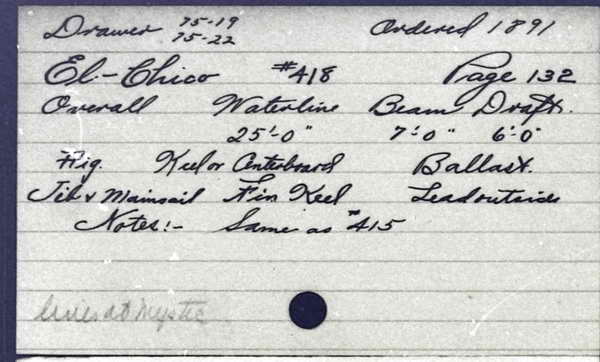 Drawer 75-19 Ordered 1891
75-22
El-Chico #418 Page 132
Overall Waterline Beam Draft.
25'-0" 7'-0" 6'-0"
Rig. Keel or Centerboard Ballast.
Jib & Mainsail Fin Keel Lead outside
Notes:- Same as #415
lines at Mystic